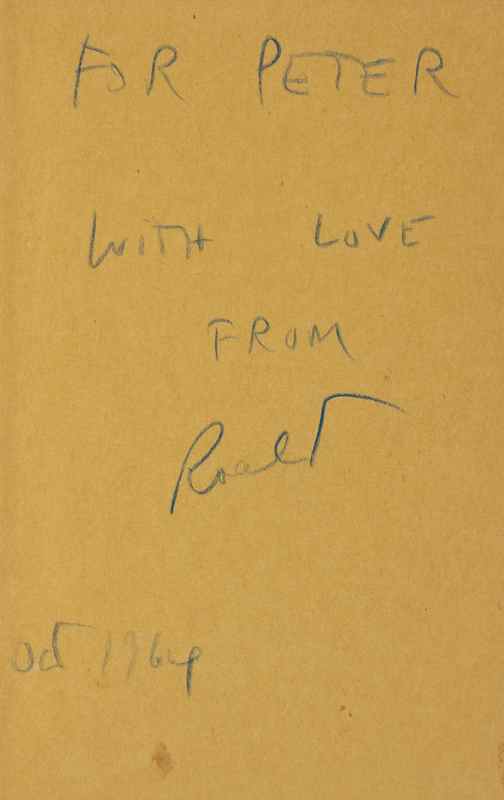 FOR PETER
WITH LOVE
FROM
Roald
Oct 1964